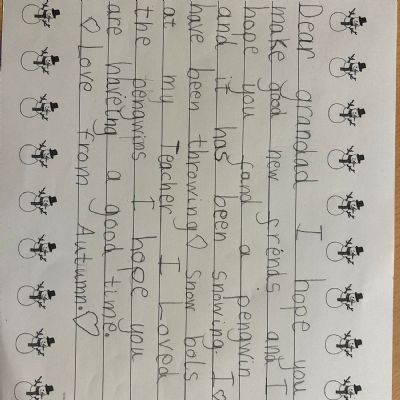 Dear grandad I hope you
make good new friends and I
hope you fand a pengwin
and it has been snowing. I
have been throwing♡ snow bols
at my Teacher I Loved
the pengwins I hope you
are haveing a good time.
♡ Love from Autumn.♡